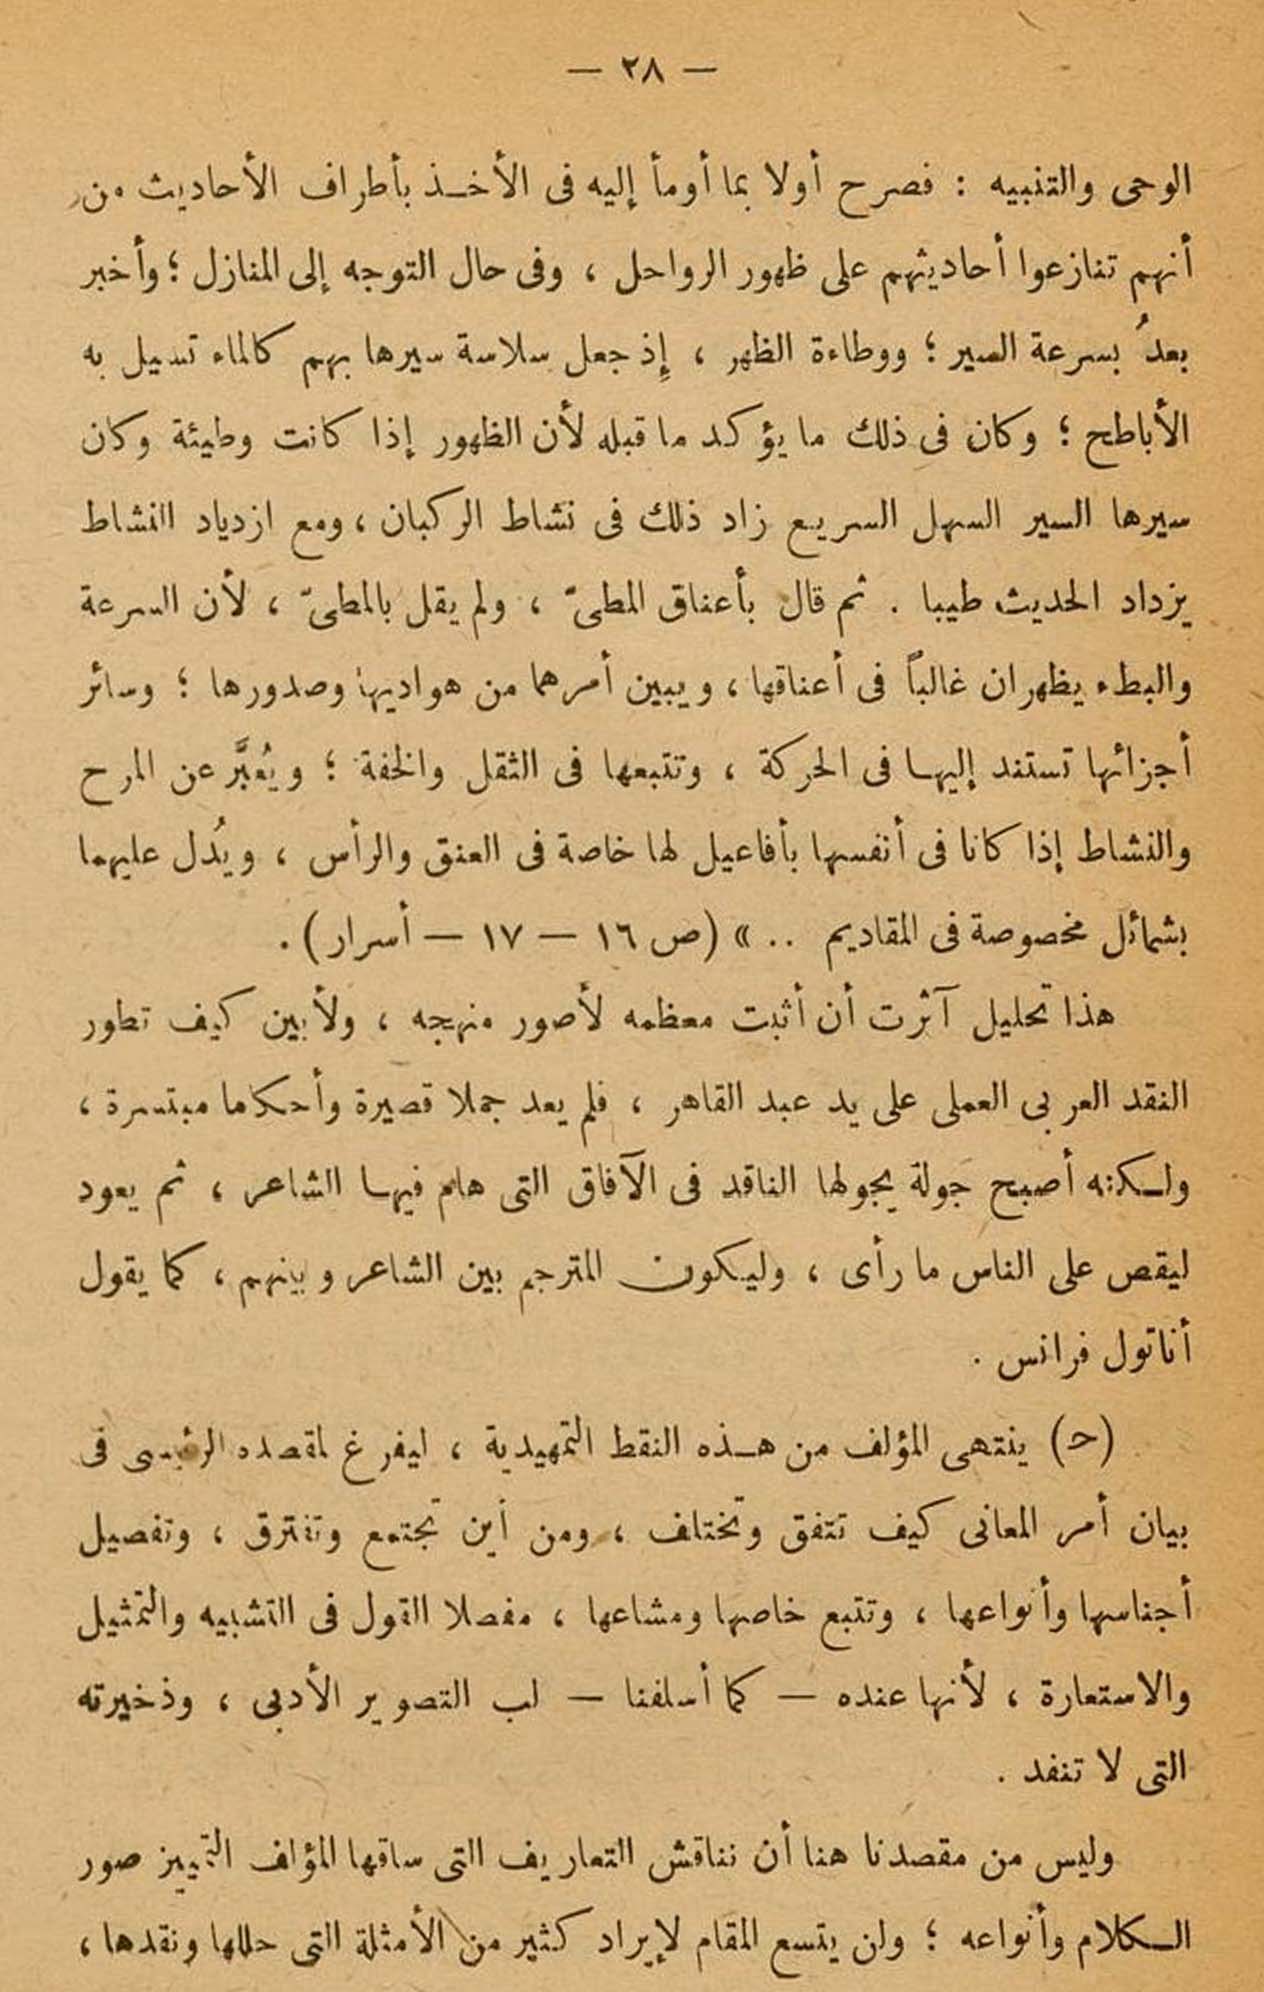 — ٢٨ —
الوحى والتنبيه : فصرح أولا بما أومأ إليه فى الأخـذ بأطراف الأحاديث من
أنهم تنازعوا أحاديثهم على ظهور الرواحل ، وفى حال التوجه إلى المنازل ؛ وأخبر
بعدُ بسرعة السير ؛ ووطاءة الظهر ، إذ جعل سلاسة سيرها بهم كالماء تسيل به
الأباطح ؛ وكان فى ذلك ما يؤكد ما قبله لأن الظهور إذا كانت وطيئة وكان
سيرها السير السهل السريع زاد ذلك فى نشاط الركبان ، ومع ازدياد النشاط
يزداد الحديث طيبا . ثم قال بأعناق المطىّ ، ولم يقل بالمطىّ ، لأن السرعة
والبطء يظهران غالباً فى أعناقها ، ويبين أمرهما من هواديها وصدورها ؛ وسائر
أجزائها تستند إليهـا فى الحركة ، وتتبعها فى الثقل والخفة ؛ ويُعبَّر عن المرح
والنشاط إذا كانا فى أنفسها بأفاعيل لها خاصة فى العنق والرأس ، ويُدل عليهما
بشمائل مخصوصة فى المقاديم .. » (ص ١٦ — ١٧ — أسرار) .
هذا تحليل آثرت أن أثبت معظمه لأصور منهجه ، ولأبين كيف تطور
النقد العربى العملى على يد عبد القاهر ، فلم يعد جملا قصيرة وأحكاما مبتسرة ،
ولـكنه أصبح جولة يجولها الناقد فى الآفاق التى هام فيهـا الشاعر ، ثم يعود
ليقص على الناس ما رأى ، وليكون المترجم بين الشاعر وبينهم ، كما يقول
أناتول فرانس .
(حـ) ينتهى المؤلف من هـذه النقط التمهيدية ، ليفرغ لمقصده الرئيسى فى
بيان أمر المعانى كيف تتفق وتختلف ، ومن أين تجتمع وتفترق ، وتفصيل
أجناسها وأنواعها ، وتتبع خاصها ومشاعها ، مفصلا القول فى التشبيه والتمثيل
والاستعارة ، لأنها عنده — كما أسلفنا — لب التصوير الأدبى ، وذخيرته
التى لا تنفد .
وليس من مقصدنا هنا أن نناقش التعاريف التى ساقها المؤلف لتمييز صور
الـكلام وأنواعه ؛ ولن يتسع المقام لإيراد كثير من الأمثلة التى حللها ونقدها ،